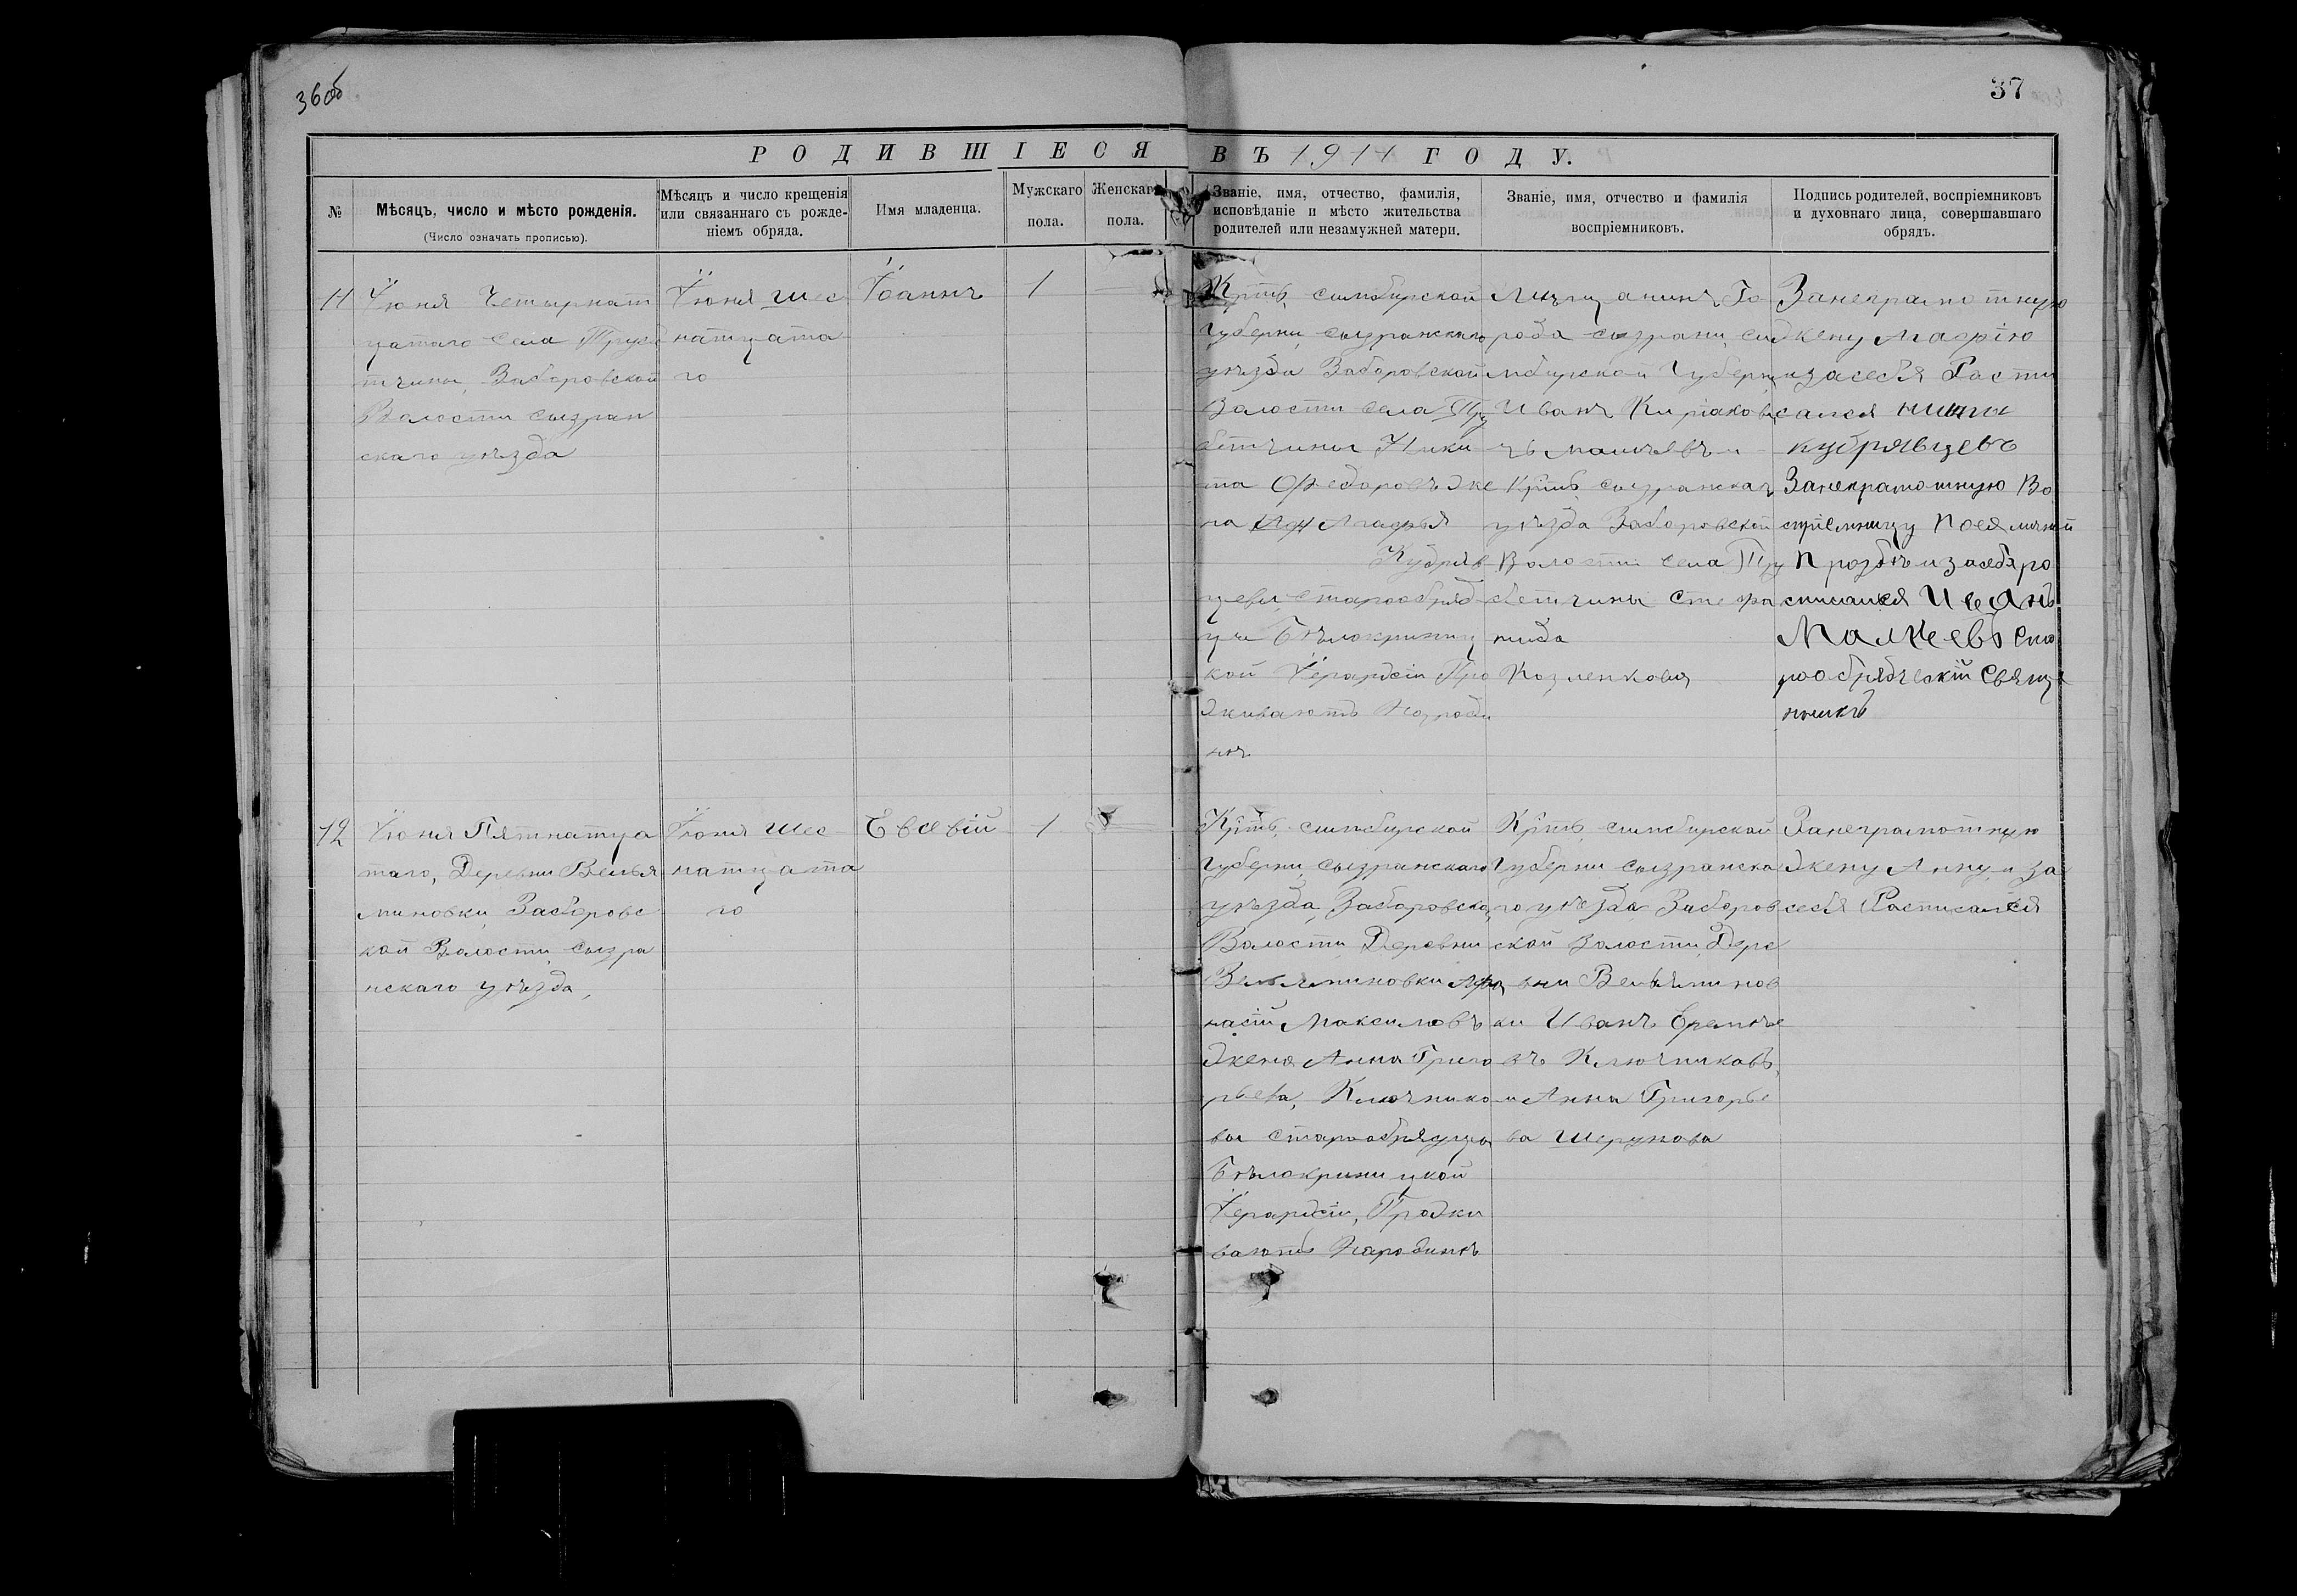 36 об
37
РОДИВШІЕСЯ ВЪ 1911 ГОДУ.
№
Мѣсяцъ, число и мѣсто рожденія.
(Число означать прописью).
Мѣсяцъ и число крещенія
или связаннаго съ рожде-
ніемъ обряда.
Имя младенца.
Мужскаго
пола.
Женскаго
пола.
Званіе, имя, отчество, фамилія,
исповѣданіе и мѣсто жительства
родителей или незамужней матери.
Званіе, имя, отчество и фамилія
воспріемниковъ.
Подпись родителей, воспріемниковъ
и духовнаго лица, совершавшаго
обрядъ.
11
Іюня Четырнат
цатаго Села Труб
тчины, Заборовской
Волости сызран
скаго уѣзда
Іюня шес
натцата
го
Іоаннъ
1
Крть, симбирской
Губерни, сызранскаго
уѣзда Заборовской
Волости Села Тру
бетчины Ники
та Федоровъ Же
на Марфья
Кудряв
цевы, старообряд
цы Бѣлокриниц
кой Іерархіи Про
живаютъ Народи
нѣ
Мѣщанинъ Го
рода сызрани, си
мбирской Губерни
Иванъ Киріакови
чъ Малчевъ и
Крть, сызранскаг
уѣзда Заборовской
Волости села Тру
бетчины Стефа
нида
Козленкова
Занеграмотную
жену Марфію
изасебя Распи
сался никита
кудрявцевъ
Занеграмотную Во
спріемницу Поея личной
Прозбѣ изасебя ро
списался Иванъ
Малчевъ Ста
рообрядческій Свяще
нникъ
12
Іюня Пятнатца
таго, Деревни Велья
миновки, Заборовс
кой Волости, сызра
нскаго уѣзда,
Іюня шес
натцата
го
Евсевій
1
Крть, симбирской
Губерни, сызранскаго
уѣзда, Заборовско
Волости, Деревни
Вельяминовки Афа
насій Максимовъ
Жена Анна Григо
рьева, Ключнико
вы старообрядцы
Бѣлокриницкой
Іерархіи, Прожи
ваютъ Народинѣ
Крть, симбирской
Губерни сызранска
го уѣзда Заборов
ской Волости, Дере
вни Вельяминов
ки Иванъ Еремѣе
въ Ключниковъ,
и Анна Григорье
ва Шерунова
Занеграмотную
Жену Анну, и за
себя Расписался